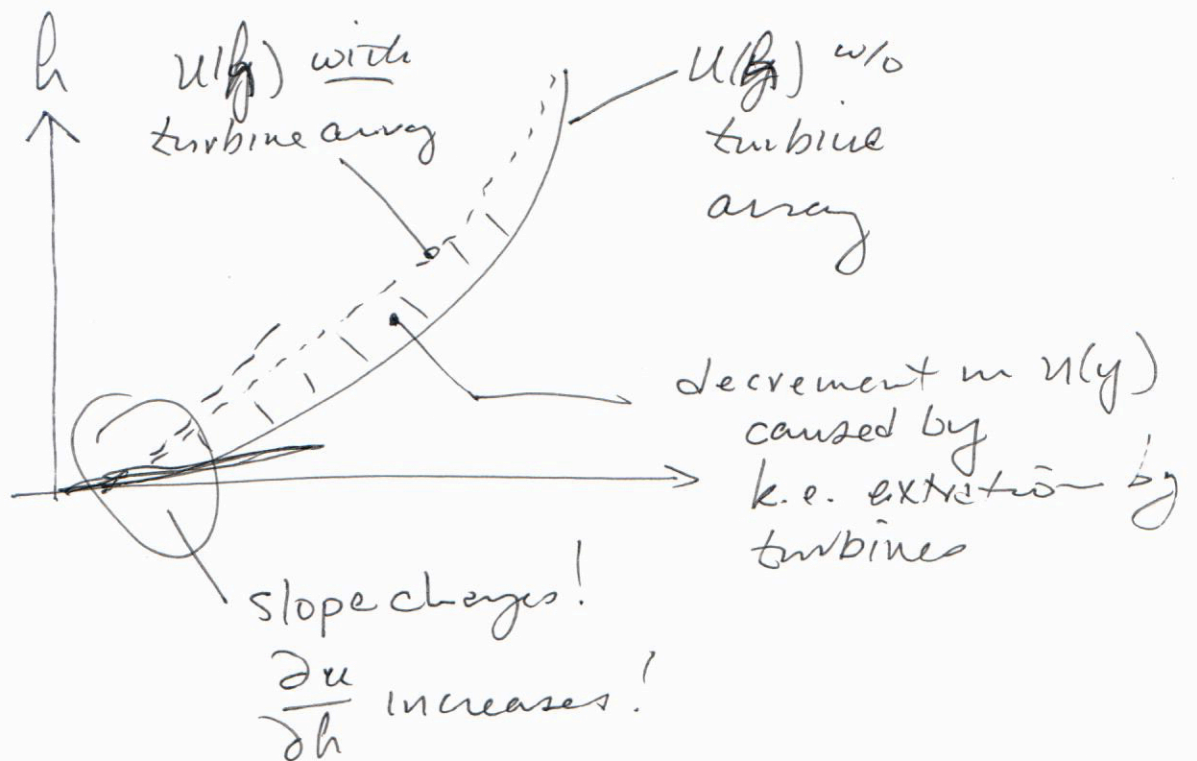 h
U(y) with
turbine array
U(y) w/o
turbine
array
decrement in U(y)
caused by
k.e. extration by
turbines
slope changes!
∂u
∂h increases!